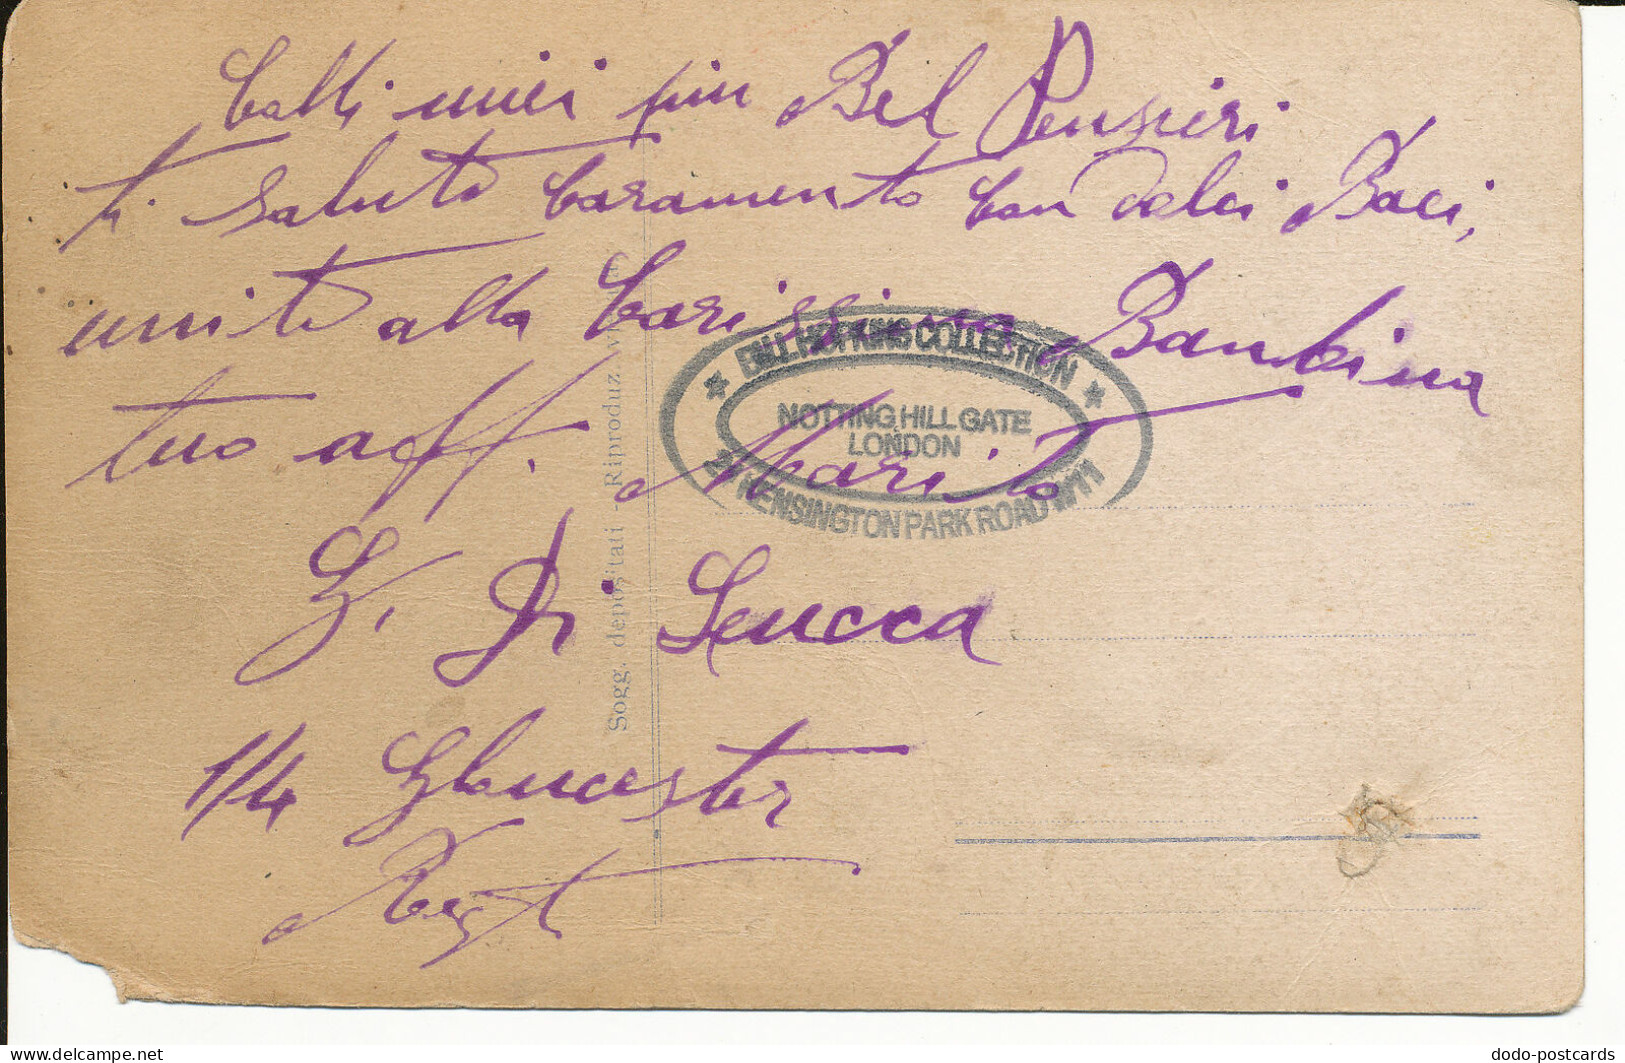 Colli miei piu Bel Pensieri
ti saluto Caramento Con dolci Baci,
unito alla Carissima Bambina
tuo aff. Marito
G. Di Leucca
1/4 Gloucester
Regt
Sogg. depositati - Riproduz.
BILL HOPKINS COLLECTION
NOTTING HILL GATE
LONDON
KENSINGTON PARK ROAD W11
dodo-postcards